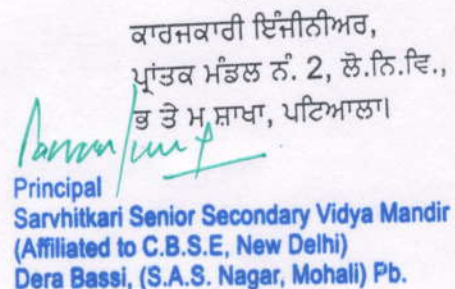 ਕਾਰਜਕਾਰੀ ਇੰਜੀਨੀਅਰ,
ਪ੍ਰਾਂਤਕ ਮੰਡਲ ਨੰ. 2, ਲੋ.ਨਿ.ਵਿ.,
ਭ ਤੇ ਮ ਸ਼ਾਖਾ, ਪਟਿਆਲਾ।
Principal
Sarvhitkari Senior Secondary Vidya Mandir
(Affiliated to C.B.S.E, New Delhi)
Dera Bassi, (S.A.S. Nagar, Mohali) Pb.